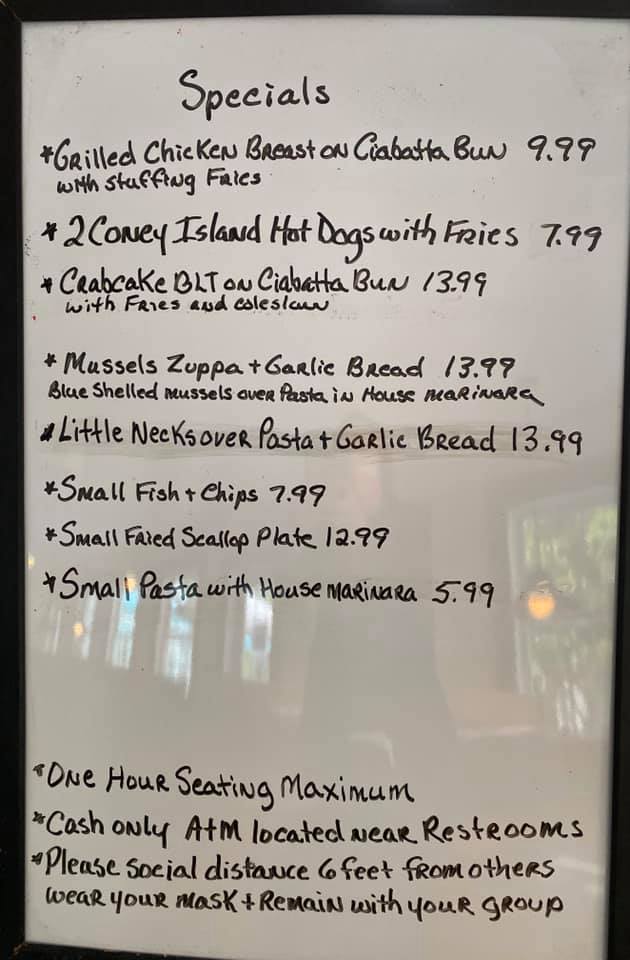 Specials
*Grilled Chicken Breast on Ciabatta Bun 9.99
with stuffing Fries
* 2 Coney Island Hot Dogs with Fries 7.99
* Crabcake BLT on Ciabatta Bun 13.99
with Fries and coleslaw
* Mussels Zuppa + Garlic Bread 13.99
Blue Shelled mussels over Pasta in House marinara
* Little Necks over Pasta + Garlic Bread 13.99
*Small Fish + Chips 7.99
*Small Fried Scallop Plate 12.99
*Small Pasta with House marinara 5.99
*One Hour Seating Maximum
*Cash only AtM located near Restrooms
*Please social distance 6 feet from others
wear your mask + Remain with your group